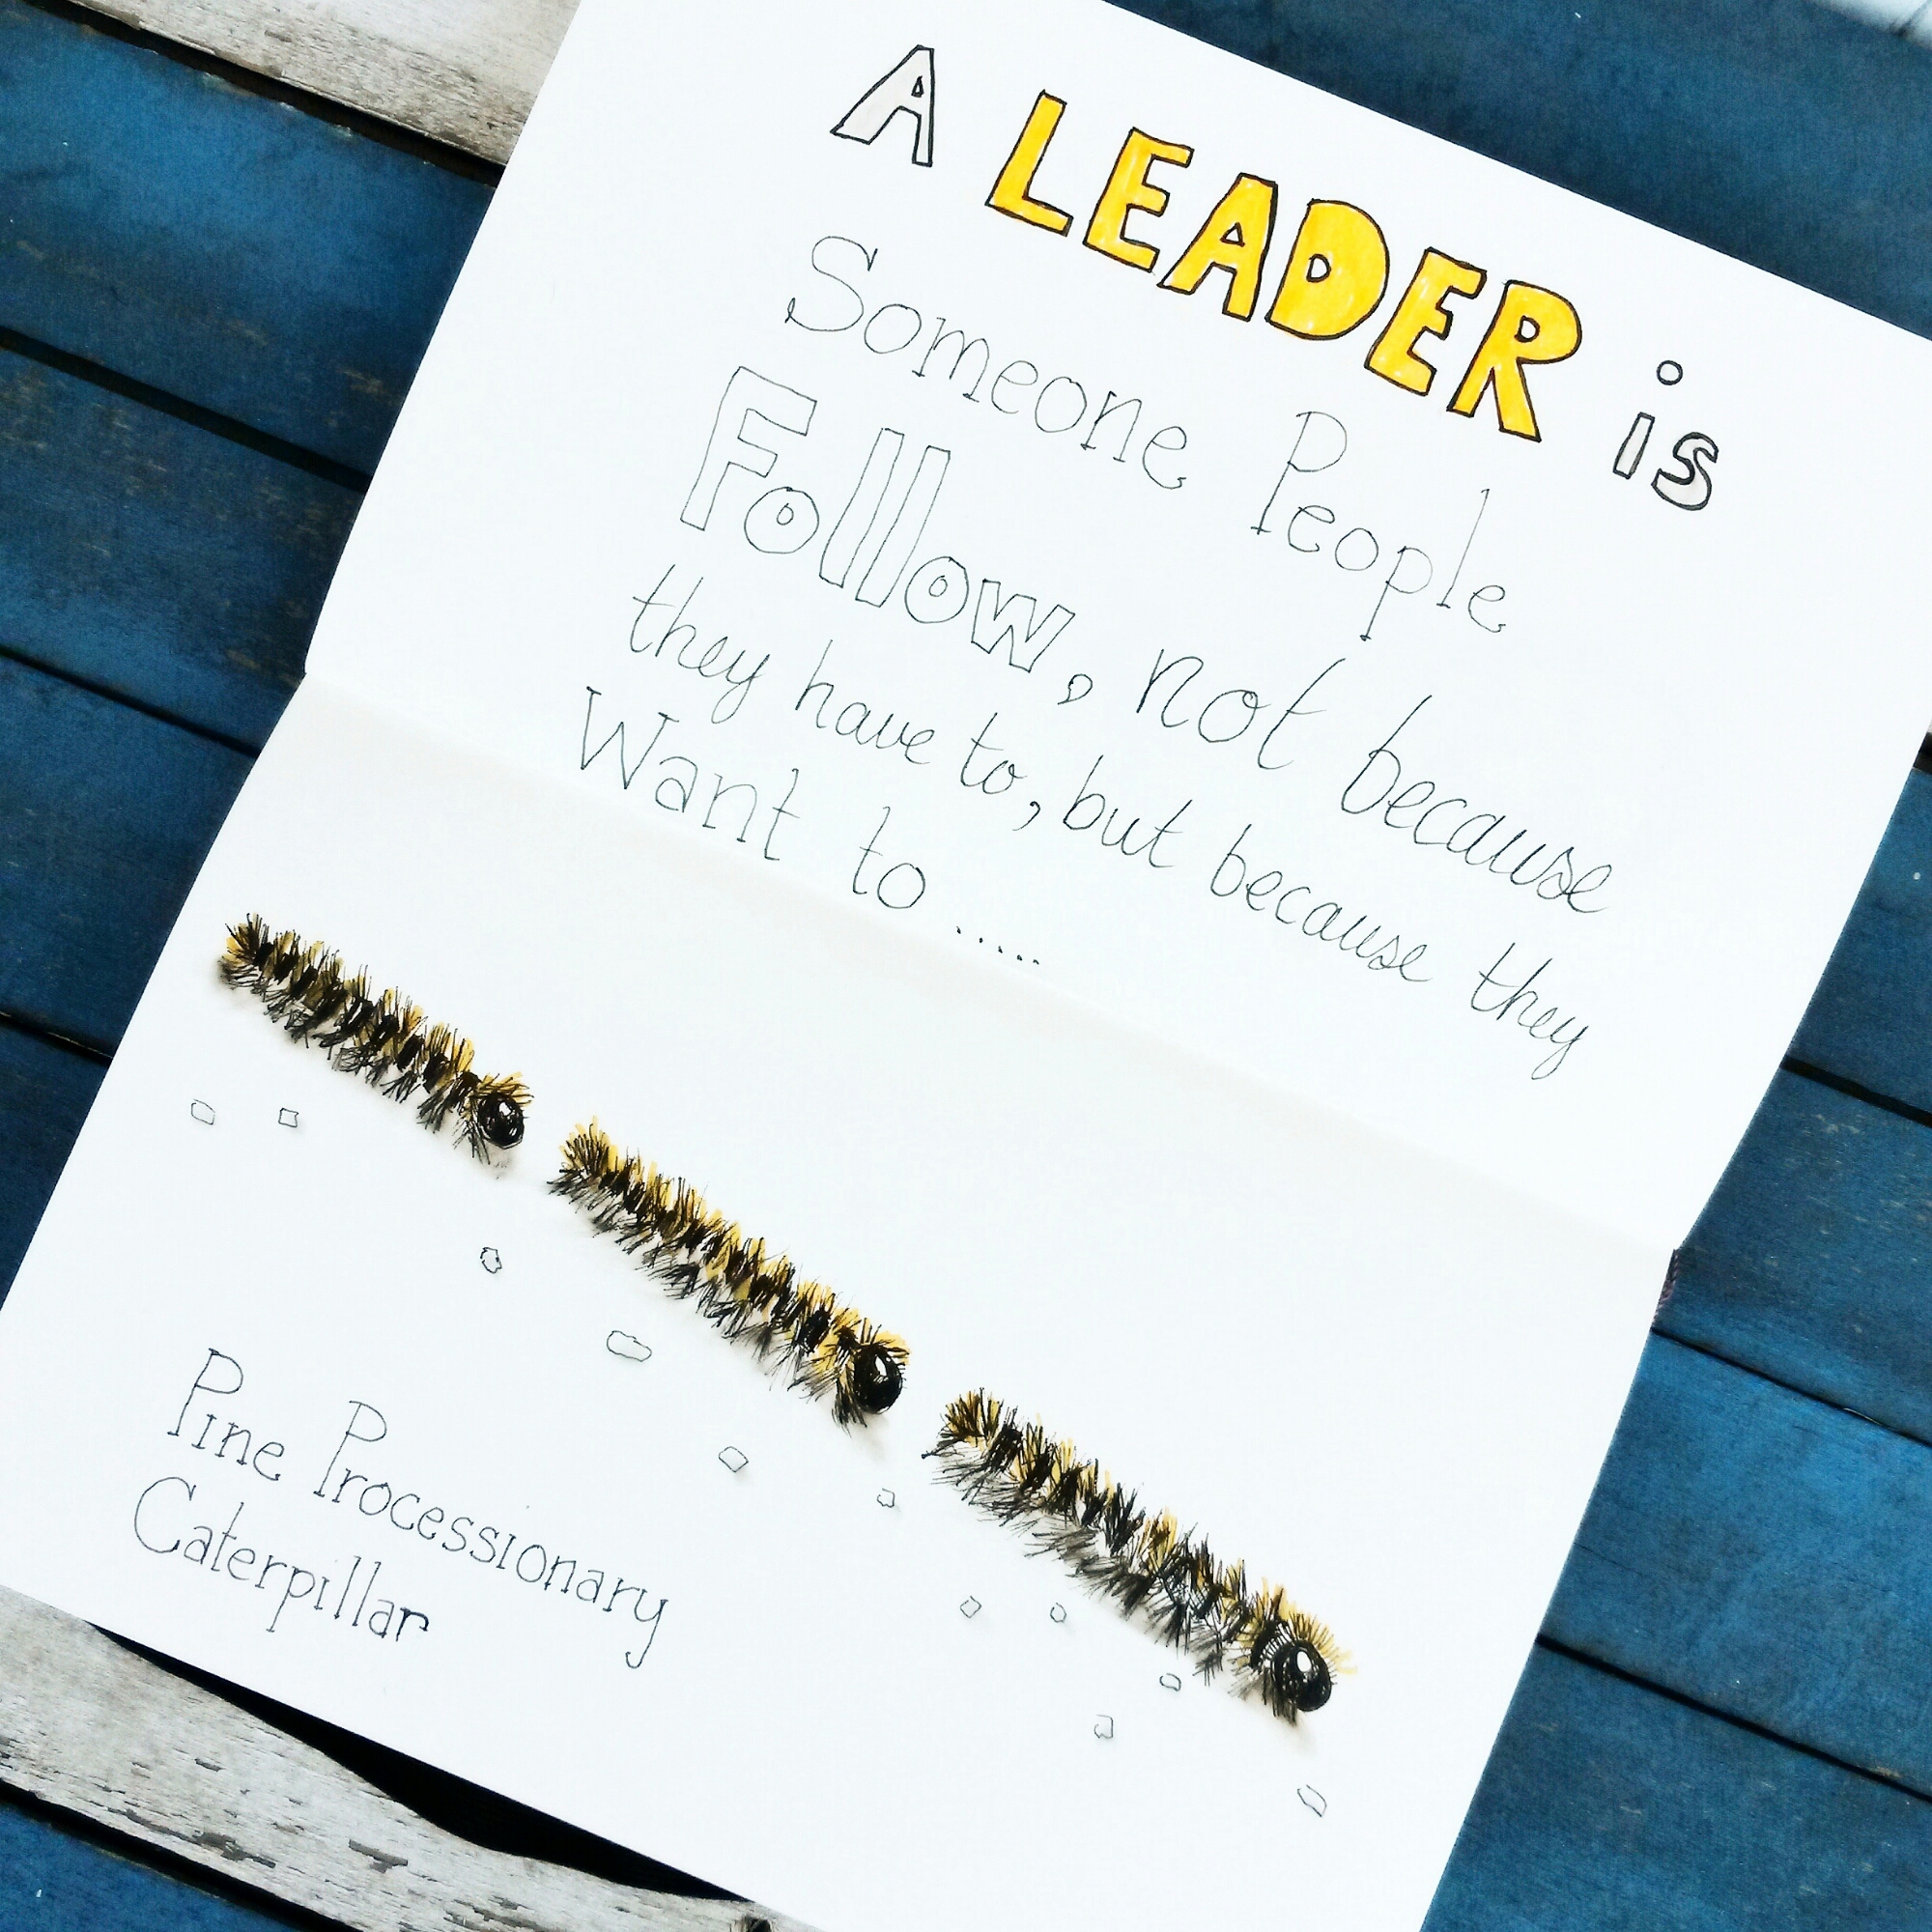 A LEADER is
Someone People
Follow, not because
they have to, but because they
Want to .....
Pine Processionary
Caterpillar